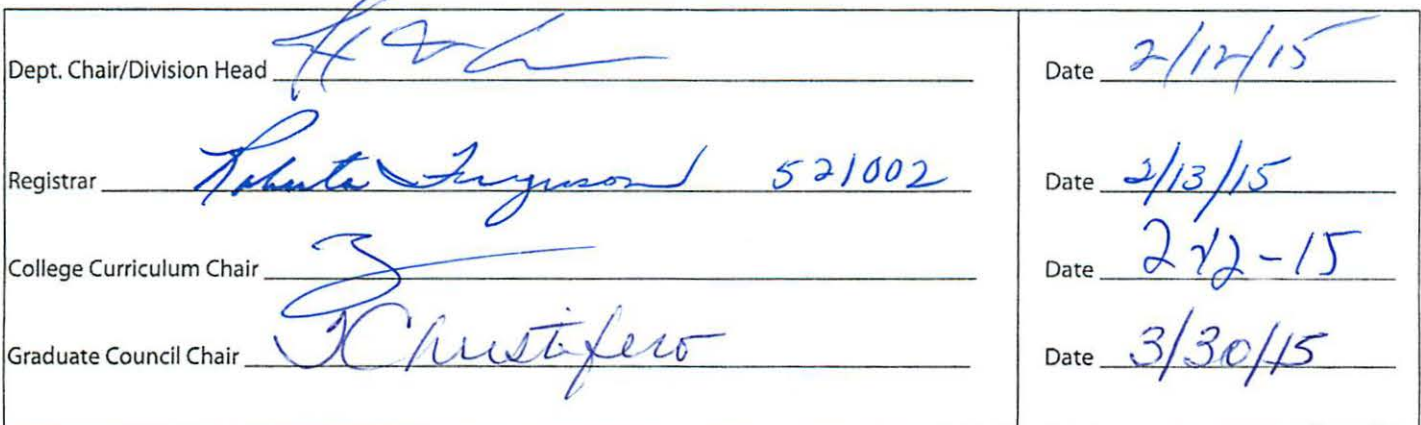 Dept. Chair/Division Head Date 2/12/15
Registrar Roberta Ferguson 521002 Date 2/13/15
College Curriculum Chair Date
Graduate Council Chair Date 3/30/15